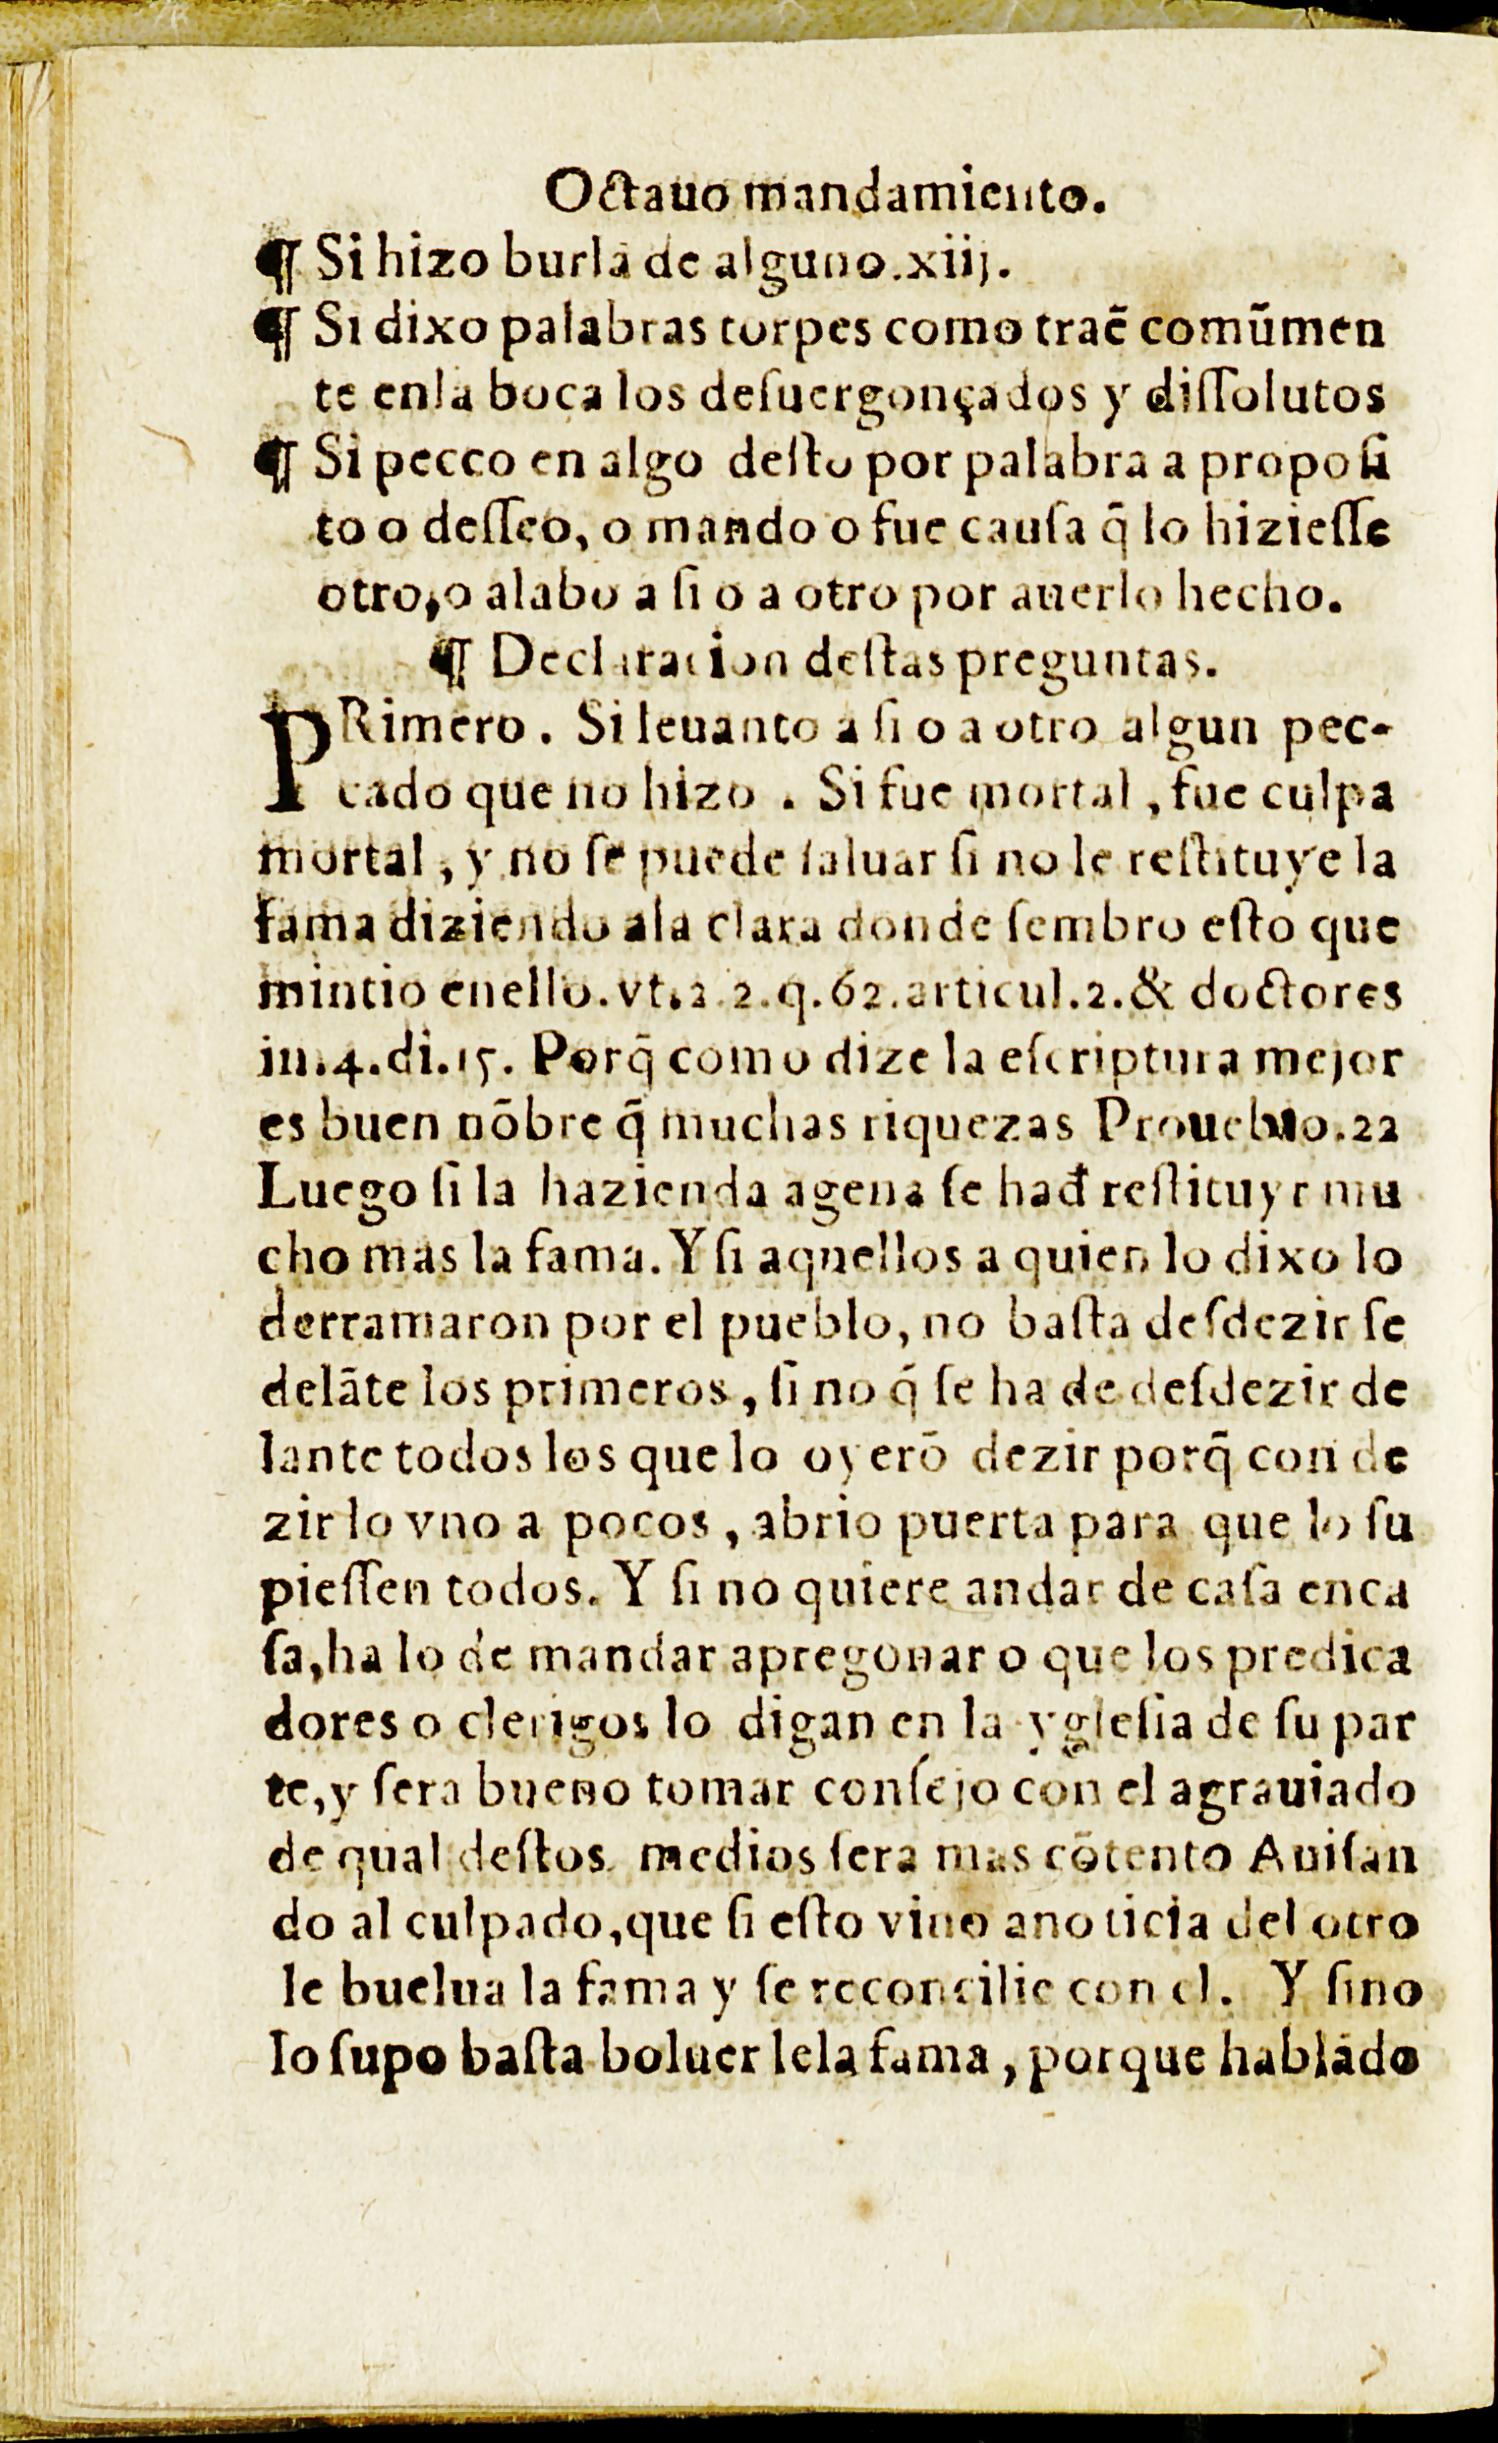 Octauo mandamiento.
¶ Si hizo burla de alguno.xiij.
¶ Si dixo palabras torpes como traē comūmen
te enla boca los deſuergonçados y diſſolutos
¶ Si pecco en algo deſto por palabra a propoſi
to o deſſeo, o mando o fue cauſa q̄ lo hizieſſe
otro,o alabo a ſi o a otro por auerlo hecho.
¶ Declaracion deſtas preguntas.
PRimero. Si leuanto a ſi o a otro algun pec-
cado que no hizo . Si fue mortal , fue culpa
mortal , y no ſe puede ſaluar ſi no le reſtituye la
fama diziendo ala clara donde ſembro eſto que
mintio enello.vt.2.2.q.62.articul.2.& doctores
in.4.di.15. Porq̄ como dize la eſcriptura mejor
es buen nōbre q̄ muchas riquezas 22
Luego ſi la hazienda agena ſe hađ reſtituyr mu
cho mas la fama. Y ſi aquellos a quien lo dixo lo
derramaron por el pueblo, no baſta deſdezir ſe
delāte los primeros , ſi no q́ ſe ha de deſdezir de
lante todos los que lo oyerō dezir porq̄ con de
zir lo vno a pocos , abrio puerta para que lo ſu
pieſſen todos. Y ſi no quiere andar de caſa enca
ſa,ha lo de mandar apregonar o que los predica
dores o clerigos lo digan en la ygleſia de ſu par
te,y ſera bueno tomar conſejo con el agrauiado
de qual deſtos medios ſera mas cōtento Auiſan
do al culpado,que ſi eſto vino ano ticia del otro
le buelua la fama y ſe reconcilie con el. Y ſino
lo ſupo baſta boluer lela fama , porque hablādo